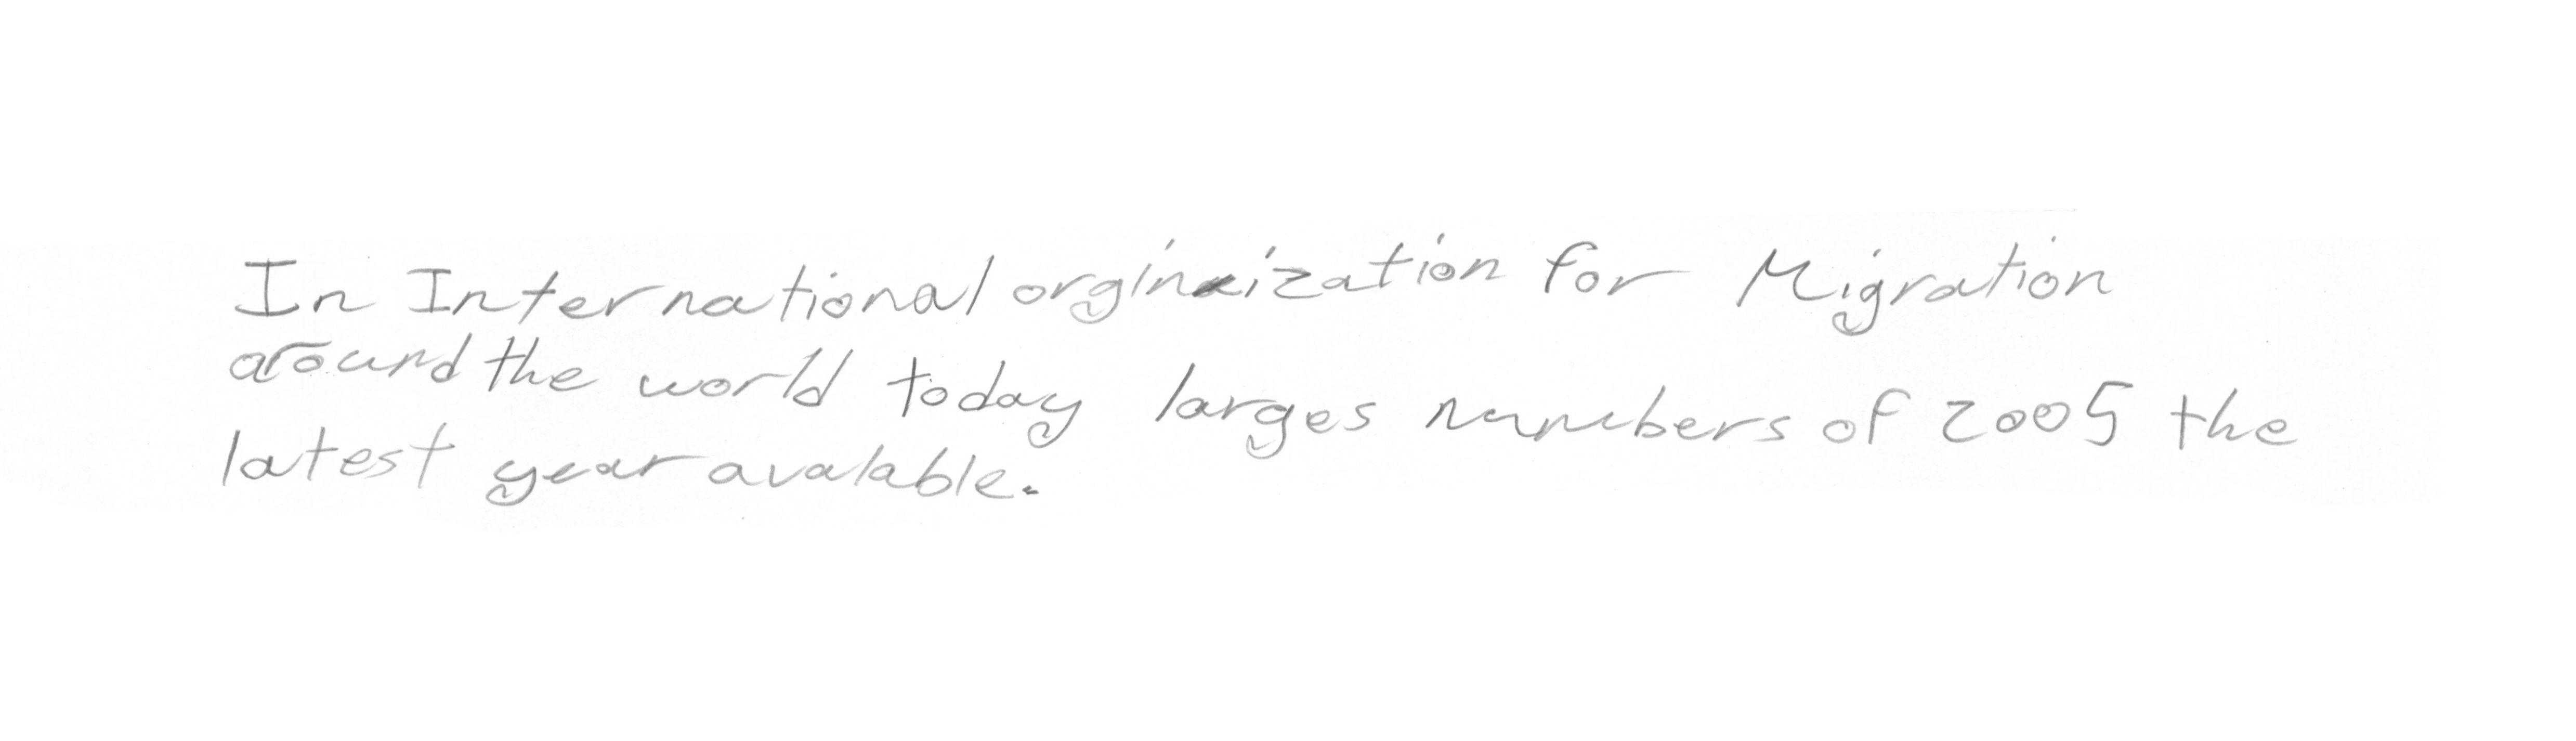 In International orginization for Migration
around the world today larges numbers of 2005 the
latest year avalable.